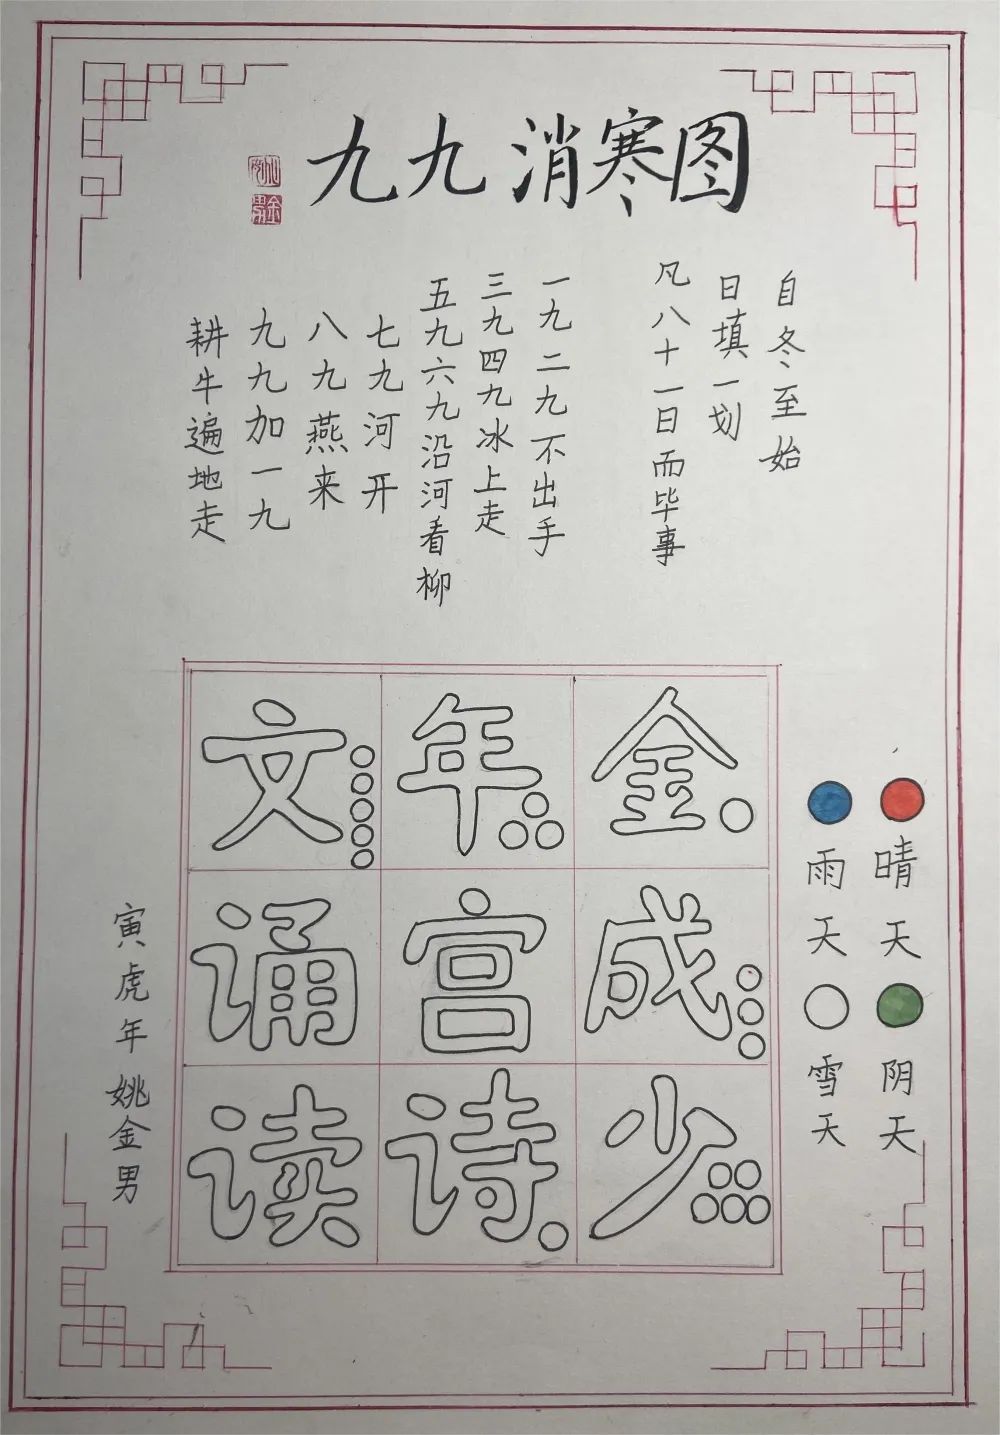 九九消寒图
自冬至始
日填一划
凡八十一日而毕事
一九二九不出手
三九四九冰上走
五九六九沿河看柳
七九河开
八九燕来
九九加一九
耕牛遍地走
晴天
阴天
雨天
雪天
金成少
年宫诗
文诵读
寅虎年姚金男